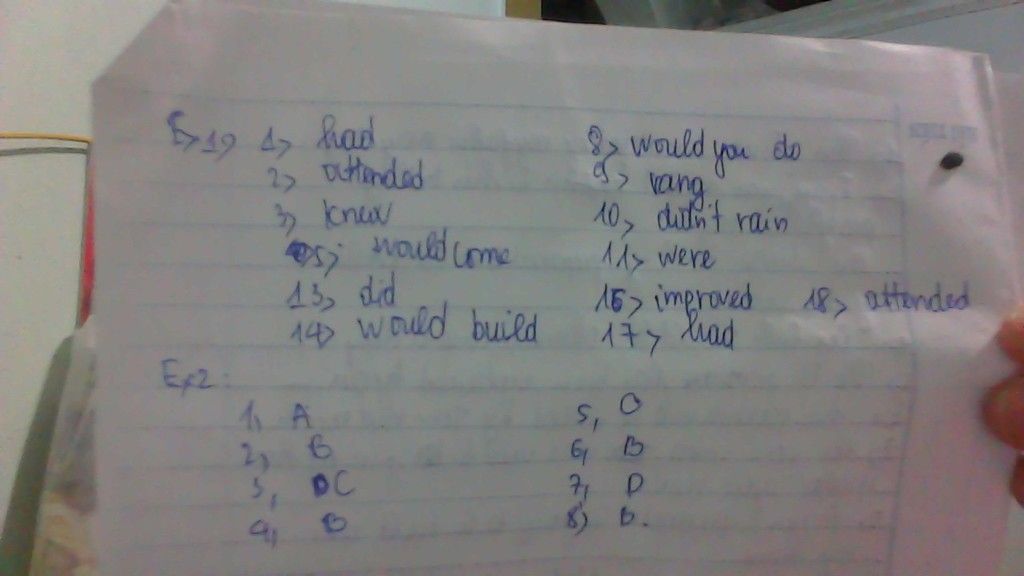 Ex1> 1> had 8> would you do
2> attended 9> rang
3> knew 10> didn't rain
5> would come 11> were
13> did 16> improved 18> attended
14> would build 17> had
Ex2:
1, A 5,
2, B 6, B
3, C 7, D
4, B 8, B.